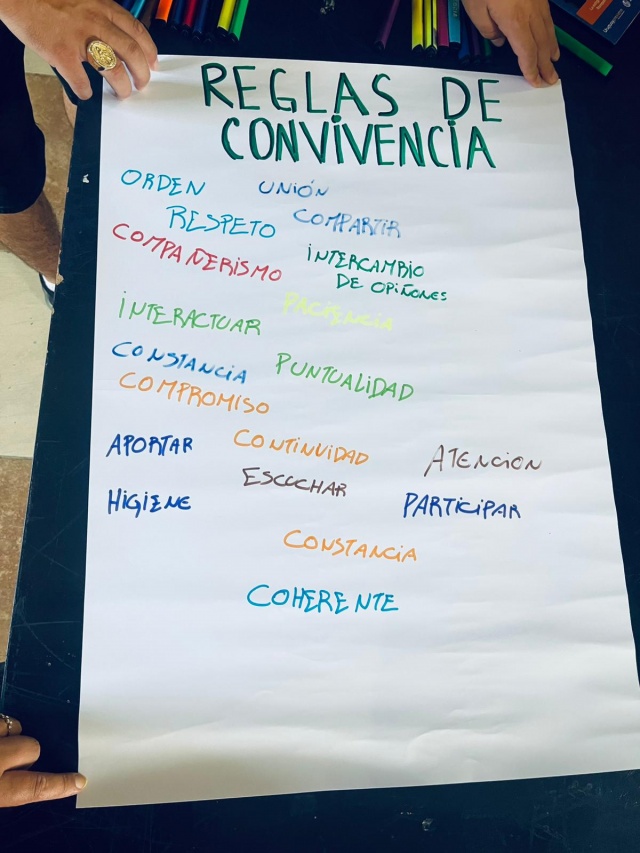 REGLAS DE
CONVIVENCIA
ORDEN
UNIÓN
RESPETO
COMPARTIR
COMPAÑERISMO
INTERCAMBIO
DE OPIÑONES
INTERACTUAR
PACIENCIA
CONSTANCIA
PUNTUALIDAD
COMPROMISO
APORTAR
CONTINUIDAD
ATENCION
ESCUCHAR
HIGIENE
PARTICIPAR
CONSTANCIA
COHERENTE